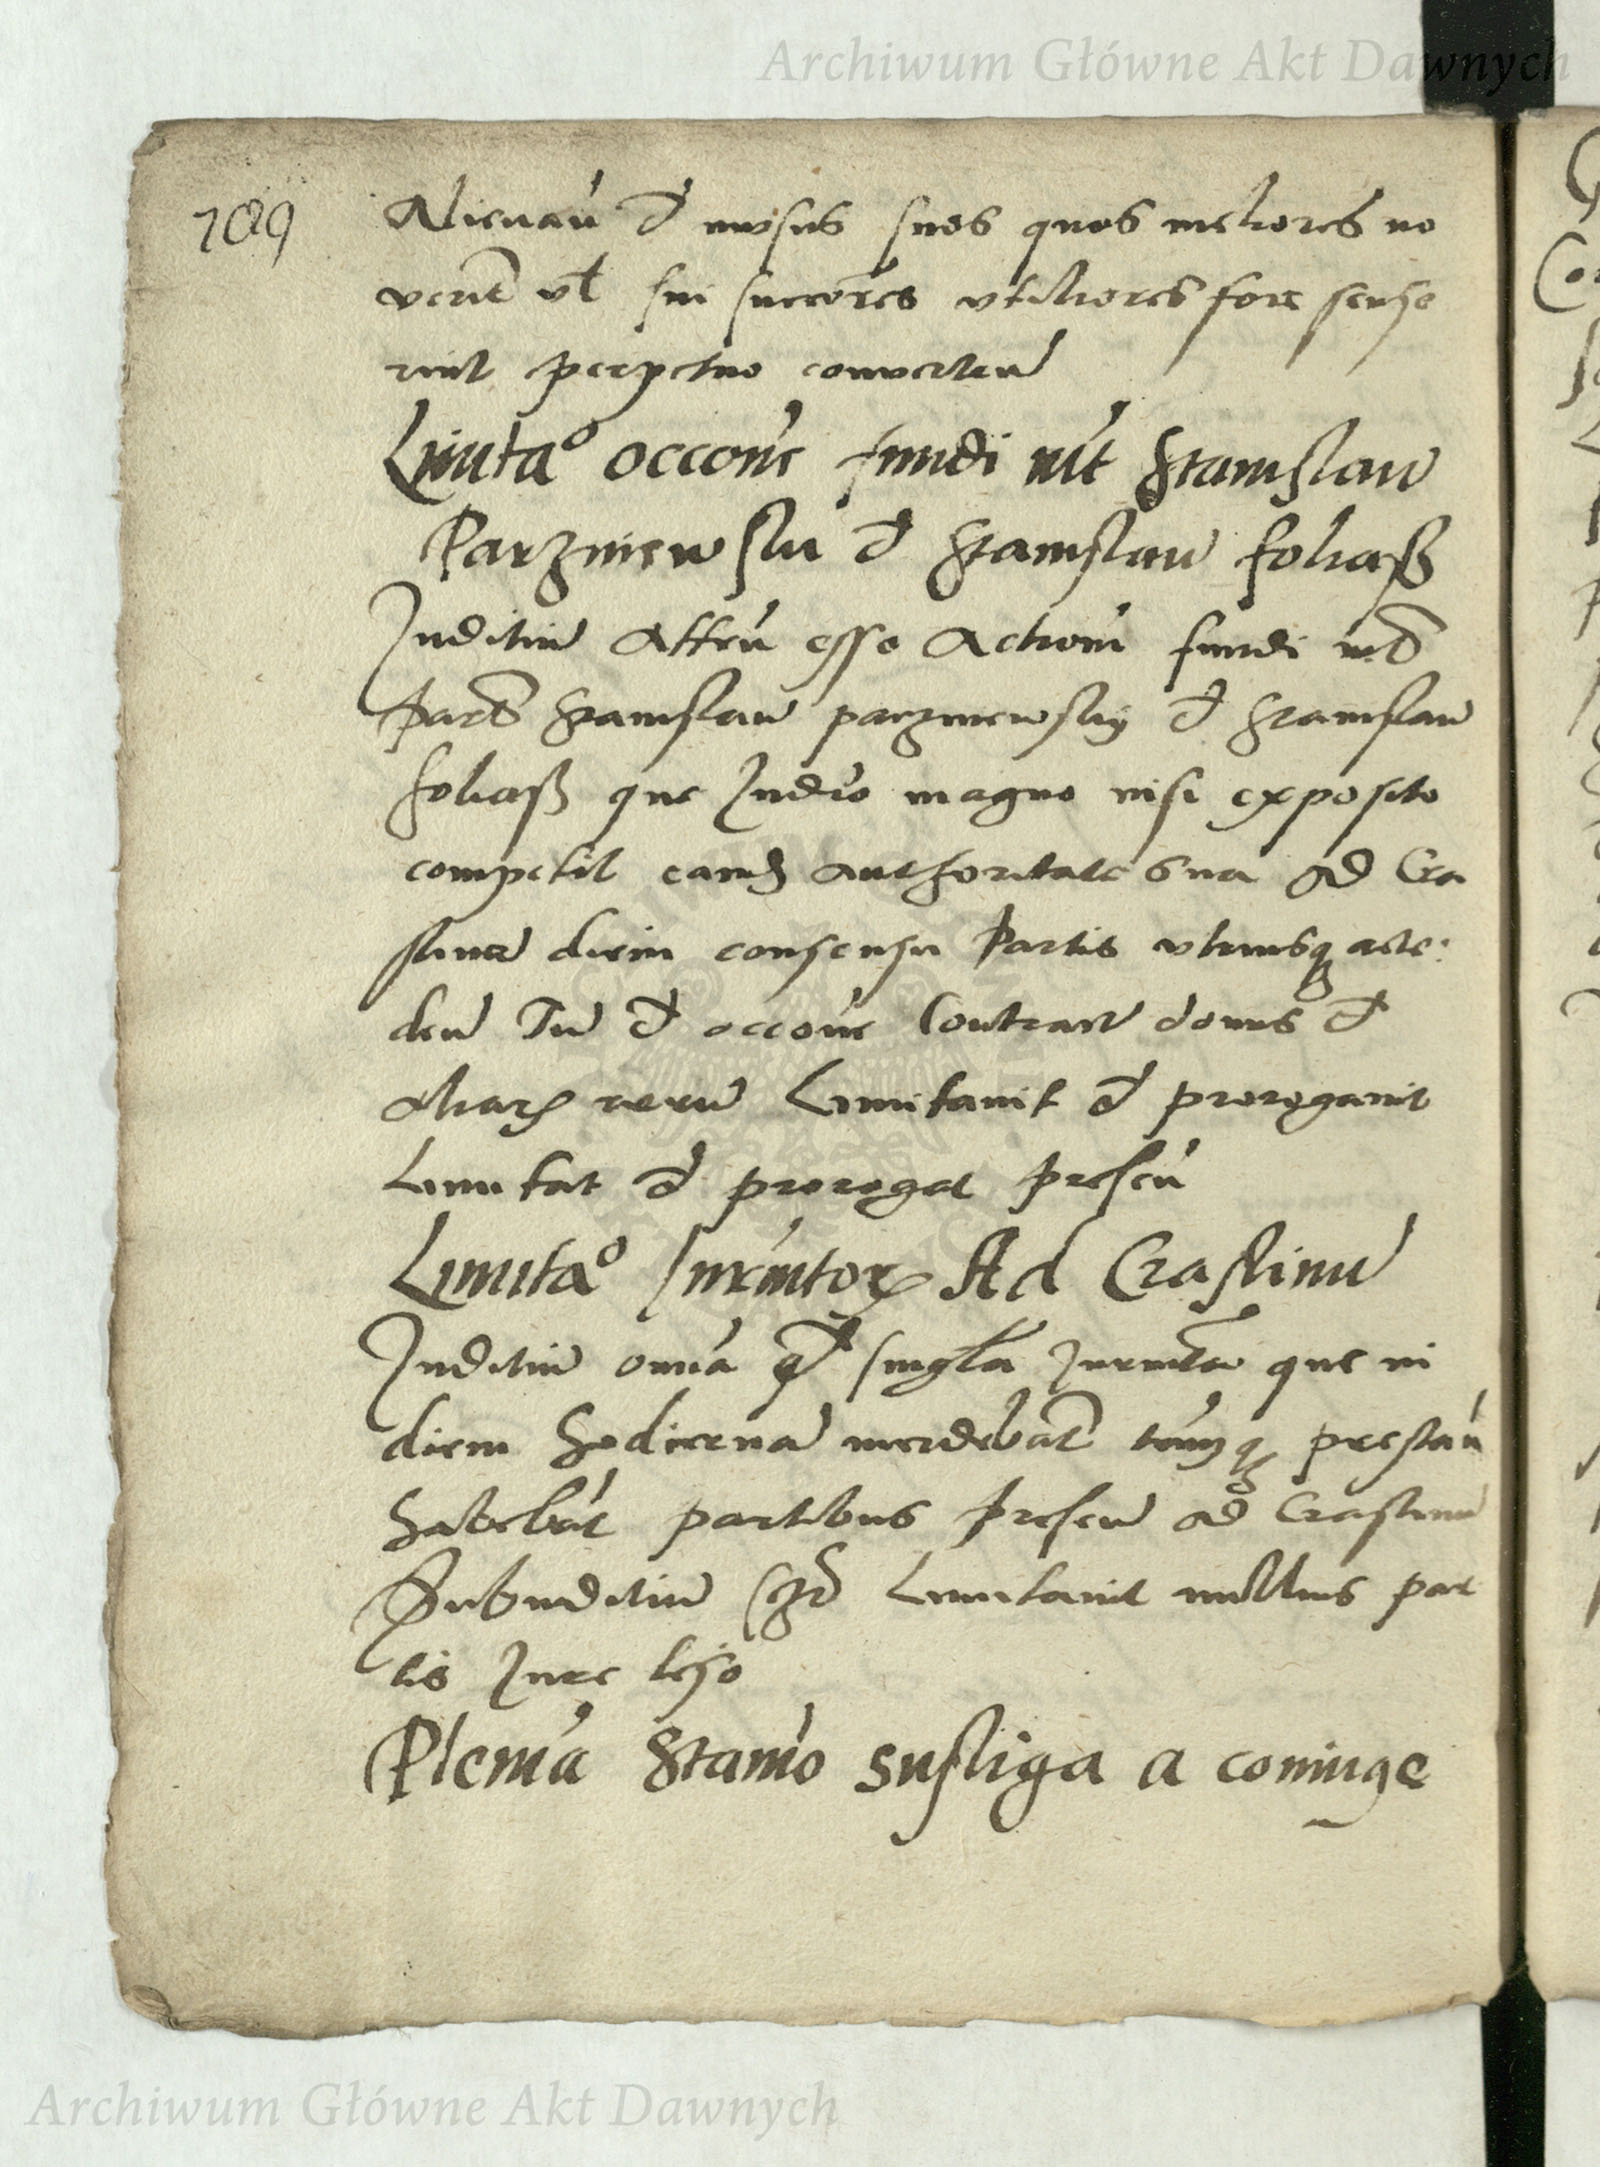 Archiwum Główne Akt Dawnych
109
Alienań et in usus suos quos meliores no
verit vl sui succores vtiliores fore sense
rint perpetuo converten
Limitao occone fundi int Stanislau
Parzniewski et Stanislau foliass
Juditiu atten esse actioni fundi int
part Stanislau parzniewskij et Stanislau
foliass que Judio magno nisi exposito
competit eamd authoritate sua ad Cra
stina diem consensu Partis vtriusq acce
den Tu et occone Contract domus et
aliar reru Limitavit et prorogavit
Limitat et prorogat presen
Limitao Jurmtor Ad Crastinu
Juditiu omia et singla Jurmta que in
diem hodierna incidebat prestan
habebat partibus presen ad Crastinu
Juditiu Limitavit nullius par
tis Jure leso
Plenia Stanio Susliga a coniuge
Archiwum Główne Akt Dawnych